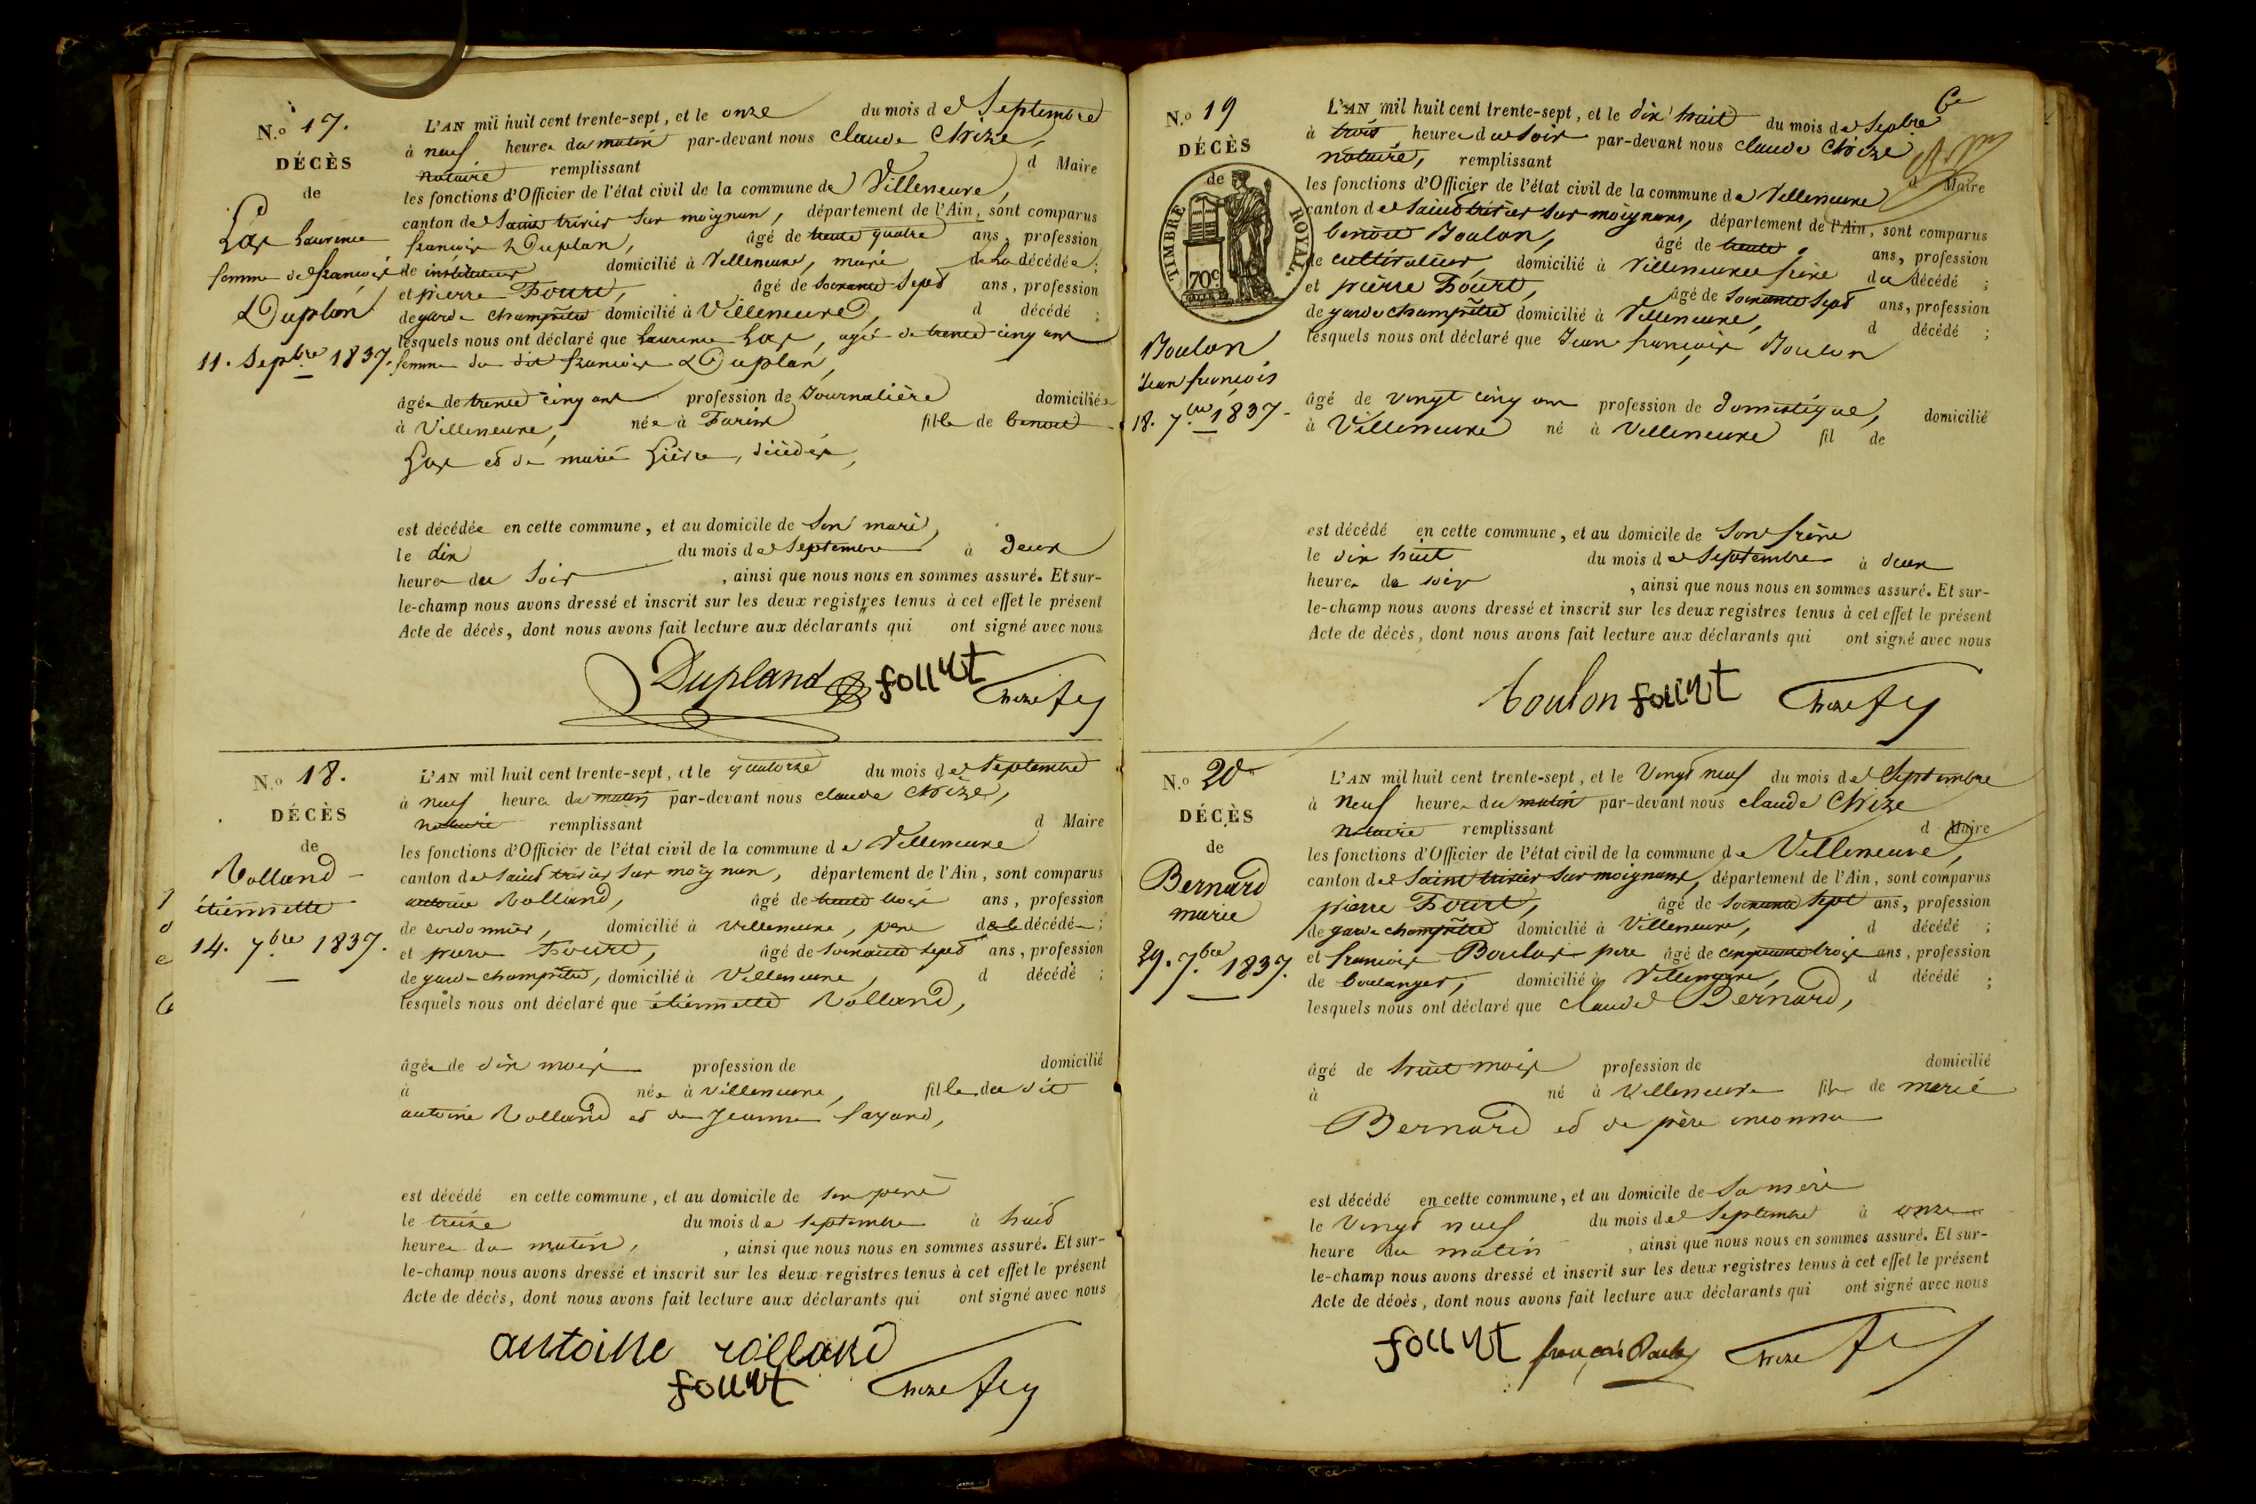 N.º 17.
DÉCÈS
de
Lax Laurence
femme de françois
Duplan
11. Sepbre 1837.
L'AN mil huit cent trente-sept, et le onze du mois de Septembre
à neuf heures du matin par-devant nous Claude Chize,
notaire remplissant d Maire
les fonctions d'Officier de l'état civil de la commune de Villeneuve,
canton de Saint trivier sur moignan, département de l'Ain, sont comparus
françois Duplan, âgé de trente quatre ans, profession
de instituteur domicilié à Villeneuve, mari de la décédée;
et pierre Fourt, âgé de soixante sept ans, profession
de garde champêtre domicilié à Villeneuve, d décédé ;
lesquels nous ont déclaré que Laurence Lax, agée de trente cinq ans
femme du dit françois Duplan,
âgée de trente cinq ans profession de Journalière domiciliée
à Villeneuve, née à Farins fille de benoit
Lax et de marie Lièvre, décédés,
est décédée en cette commune, et au domicile de son mari,
le dix du mois de Septembre à deux
heures du soir , ainsi que nous nous en sommes assuré. Et sur-
le-champ nous avons dressé et inscrit sur les deux registres tenus à cet effet le présent
Acte de décès, dont nous avons fait lecture aux déclarants qui ont signé avec nous
Dupland fourt Chize
N.º 18.
DÉCÈS
de
Rolland
étiennette
14. 7bre 1837.
L'AN mil huit cent trente-sept, et le quatorze du mois de Septembre
à neuf heures du matin par-devant nous Claude Chize,
notaire remplissant d Maire
les fonctions d'Officier de l'état civil de la commune de Villeneuve
canton de Saint trivier sur moignan, département de l'Ain, sont comparus
antoine Rolland, âgé de trente trois ans, profession
de cordonnier, domicilié à Villeneuve, père de la décédée;
et pierre Fourt, âgé de soixante sept ans, profession
de garde champêtre, domicilié à Villeneuve, d décédé ;
lesquels nous ont déclaré que étiennette Rolland,
âgée de dix mois profession de domicilié
à née à Villeneuve, fille du dit
antoine Rolland et de Jeanne fayard,
est décédé en cette commune, et au domicile de son père
le treize du mois de septembre à huit
heures du matin, , ainsi que nous nous en sommes assuré. Et sur-
le-champ nous avons dressé et inscrit sur les deux registres tenus à cet effet le présent
Acte de décès, dont nous avons fait lecture aux déclarants qui ont signé avec nous
antoine rolland
fourt Chize
N.º 19
DÉCÈS
de
TIMBRE ROYAL.
70c
Boulon
Jean françois
18. 7bre 1837.
L'AN mil huit cent trente-sept, et le dix huit du mois de Sepbre
à trois heures du soir par-devant nous Claude Chize
notaire, remplissant d Maire
les fonctions d'Officier de l'état civil de la commune de Villeneuve
canton de Saint trivier sur moignans, département de l'Ain, sont comparus
benoit Boulon, âgé de trente ans, profession
de cultivateur, domicilié à Villeneuve frère du décédé ;
et pierre Fourt, âgé de soixante sept ans, profession
de garde champêtre domicilié à Villeneuve, d décédé ;
lesquels nous ont déclaré que Jean françois Boulon
âgé de vingt cinq ans profession de domestique, domicilié
à Villeneuve né à Villeneuve fil de
est décédé en cette commune, et au domicile de son frère
le dix huit du mois de Septembre à deux
heures de soir , ainsi que nous nous en sommes assuré. Et sur-
le-champ nous avons dressé et inscrit sur les deux registres tenus à cet effet le présent
Acte de décès, dont nous avons fait lecture aux déclarants qui ont signé avec nous
boulon fourt Chize
N.º 20
DÉCÈS
de
Bernard
marie
29. 7bre 1837.
L'AN mil huit cent trente-sept, et le Vingt neuf du mois de Septembre
à Neuf heures du matin par-devant nous claude Chize
Notaire remplissant d Maire
les fonctions d'Officier de l'état civil de la commune de Villeneuve,
canton de Saint trivier sur moignans, département de l'Ain, sont comparus
pierre Fourt, âgé de soixante sept ans, profession
de garde champêtre domicilié à Villeneuve, d décédé ;
et francois Boulas père âgé de cinquante trois ans, profession
de boulanger, domicilié à Villeneuve, d décédé ;
lesquels nous ont déclaré que claude Bernard,
âgé de huit mois profession de domicilié
à né à Villeneuve fils de marie
Bernard et de père inconnu
est décédé en cette commune, et au domicile de sa mère
le Vingt neuf du mois de Septembre à onze
heure du matin , ainsi que nous nous en sommes assuré. Et sur-
le-champ nous avons dressé et inscrit sur les deux registres tenus à cet effet le présent
Acte de décès, dont nous avons fait lecture aux déclarants qui ont signé avec nous
fourt françois Chize